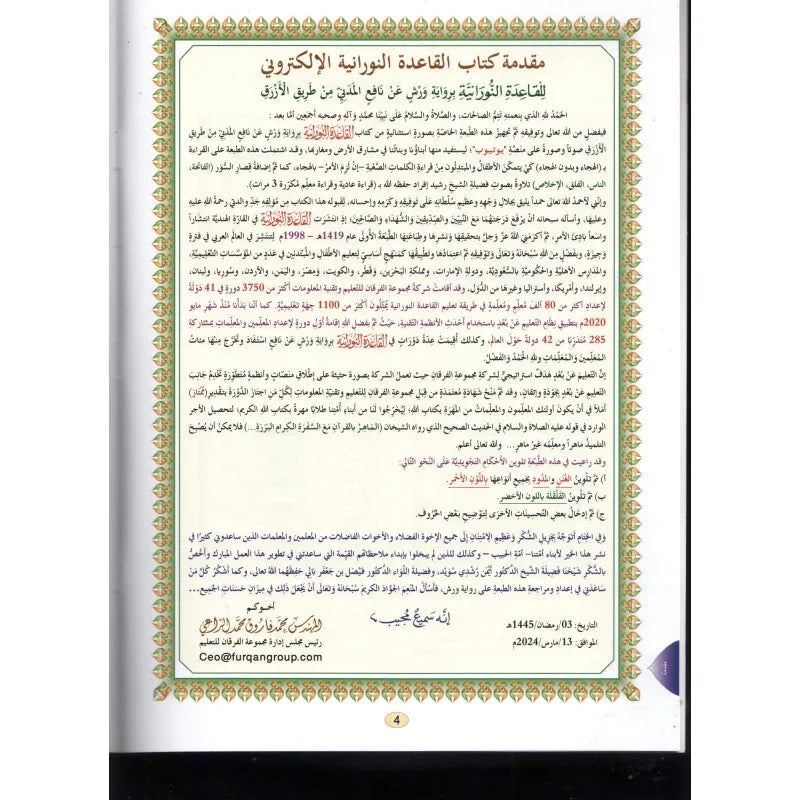 مقدمة كتاب القاعدة النورانية الإلكتروني
لِلْقَاعِدَةِ النُّورَانِيَّةِ بِرِوَايَةِ وَرْشٍ عَنْ نَافِعٍ المَدَنِيِّ مِنْ طَرِيقِ الْأَزْرَقِ
الحَمْدُ للهِ الذي بنعمتهِ تَتِمُّ الصالحات، والصَّلاةُ والسَّلامُ عَلَى نَبِيِّنَا محمَّدٍ وَآلِهِ وصحبه أجْمَعِين أمَّا بعد :
فبفضلٍ من الله تعالى وتوفيقهِ تَمَّ تجهيزُ هذه الطَّبعةِ الخاصّةِ بصورةٍ استثنائيةٍ من كتاب القَاعِدَة النُّورَانِيَّة بِروَايَةِ وَرْشٍ عَنْ نَافِعٍ المَدَنِيِّ مِن طَرِيقِ
الْأَزْرَقِ صوتاً وصورةً على منصّةِ "يوتيوب"؛ ليستفيد منها أبناؤنا وبناتُنا في مشارق الأرض ومغاربها، وقد اشتملت هذه الطبعة على القراءة
بـ (الهجاء وبدون الهجاء) كَيْ يتمكّنَ الأطفالُ والمبتدئون من قراءةِ الكلماتِ الصَّعْبةِ –إنْ لَزِمَ الأمرُ– بالهجاء، كما تَمَّ إضافةُ قِصارِ السُّوَرِ (الفاتحة،
الناس، الفلق، الإخلاص) تلاوةً بصوتِ فضيلةِ الشيخ رشيد إفراد حفظه الله بـ (قراءة عادية وقراءة معلِّم مكرّرة 3 مرات).
وإنِّي لأحمدُ الله تعالى حمداً يليق بجلالِ وَجْهِهِ وعظيمِ سُلْطَانِهِ عَلَى تَوفيقِهِ وكَرَمِهِ وإحسانِه، لِقبولِه هذا الكتاب مِن مُؤلِّفهِ جَدِّي والدتي رحمةُ اللهِ عليهِ
وعليهَا، وأسأله سبحانه أنْ يرْفَعَ درَجَتَهُمَا مَعَ النَّبِيِّينَ وَالصِّدِّيقِينَ وَالشُّهَدَاءِ والصَّالِحِينَ؛ إذ انتشَرَت القَاعِدَة النُّورَانِيَّة في القارَةِ الهنديَّةِ انْتشاراً
واسعاً بادئَ الأمرِ، ثُمَّ أكرَمَنِي اللهُ عزَّ وجلَّ بتحقيقِهَا ونشرِهَا وطِبَاعَتِهَا الطَّبْعَةَ الأُولَى عام 1419هـ – 1998م لِتَنتَشِرَ في العالَمِ العربي في فترةٍ
وَجِيزَةٍ، وبِفَضلٍ مِنَ اللهِ سُبْحَانَهُ وَتَعَالَى وَتَوْفِيقِهِ تَمَّ اعتمادُهَا وتَطْبِيقُهَا كَمَنْهَجٍ أساسِيٍّ لِتعليمِ الأطْفالِ والمُبْتَدِئِينَ في عَدَدٍ من المُؤَسَّسَاتِ التَّعْلِيمِيَّةِ،
والمدَارِسِ الأهليَّةِ والحُكُومِيَّةِ بِالسُّعُودِيَّةِ، ودولةِ الإمارَات، ومملكةِ البَحْرَيْنِ، وَقَطَر، والكُوَيت، وَمِصرَ، واليَمَنِ، والأردن، وسُوريَا، ولبنان،
وإيرلندا، وأمْرِيكَا، وأستراليا وغيرها من الدُّوَلِ، وقد أقامتْ شركةُ مجموعةِ الفرقان للتعليم وتقنية المعلومات أكثرَ من 3750 دورة في 41 دَوْلَةً
لإعدادِ أكثرَ من 80 ألفَ مُعلِّمٍ ومُعلِّمةٍ في طريقة تعليم القاعدة النورانية يُمَثِّلُون أكثَرَ من 1100 جهةٍ تَعْلِيمِيَّةٍ. كما أننا بَدَأْنَا مُنْذُ شَهْرِ مايو
2020م بتطبيقِ نِظَامِ التَّعْلِيمِ عَنْ بُعْدٍ باستخدامِ أحْدَثِ الأنظِمَةِ التِّقنيةِ، حَيْثُ تَمَّ بِفَضلِ اللهِ إقامةُ أوّلِ دورةٍ لإعدادِ المعلِّمينَ والمعلِّماتِ بِمُشَارَكَةِ
285 مُتَدَرِّبًا من 42 دولةً حَوْلَ العالَمِ، وكذلك أُقيمَتْ عِدَّةُ دَوْرَاتٍ في القَاعِدَة النُّورَانِيَّة بِرِوَايَةِ وَرْشٍ عَنْ نَافِعٍ استفادَ وتَخَرَّجَ مِنْهَا مئاتُ
المُعَلِّمِينَ وَالمُعَلِّمَاتِ وَللهِ الحَمْدُ وَالفَضْلُ.
إنَّ التَّعلِيمَ عَنْ بُعْدٍ هَدَفٌ استراتيجيٌّ لشركةِ مجموعةِ الفرقان حيث تعملُ الشركة بصورةٍ حثيثةٍ على إطْلاقِ منصّاتٍ وأنظمةٍ مُتطوِّرَةٍ تَخْدُمُ جَانِبَ
التعليمِ عَنْ بُعْدٍ بِجَوْدَةٍ وإتقانٍ، وقد تَمَّ مَنْحُ شَهَادَةٍ مُعتمَدَةٍ من قِبَلِ مجموعةِ الفرقان للتعليم وتقنية المعلوماتِ لِكُلِّ مَنِ اجتازَ الدَّوْرَةَ بتقْدِيرِ(مُمْتَاز)
أمَلاً في أنْ يكون أولئكَ المعلِّمون والمعلِّماتُ من المَهَرَةِ بِكتابِ اللهِ؛ لِيُخَرِّجُوا لَنَا من أبناءِ أُمَّتِنا طلابًا مهرةً بِكتابِ اللهِ الكريمِ؛ لتحصيلِ الأجرِ
الوارد في قوله عليه الصلاة والسلام في الحديث الصحيح الذي رواه الشيخان (المَاهِرُ بالقرآنِ مَعَ السَّفَرَةِ الكِرامِ البَرَرَةِ...) فلا يمكنُ أن يُصْبِحَ
التلميذُ ماهراً ومعلِّمُه غيرُ ماهرٍ... والله تعالى أعلم.
وقد راعيت في هذه الطَّبْعَةِ تلوين الأحْكامِ التَّجْوِيدِيَّةِ عَلَى النَّحْوِ التَّالِي:
أ) تَمَّ تَلْوِينُ الغُنَنِ والمُدُودِ بِجَمِيعِ أنوَاعِهَا بِاللَّوْنِ الأحْمَرِ.
ب) تَمَّ تَلْوِينُ القَلْقَلَةِ باللون الأخضَرِ.
ج) تَمَّ إدخَالُ بعضِ التَّحسِينَاتِ الأخرَى لِتَوْضِيحِ بَعْضِ الحُرُوفِ.
وَفِي الخِتَامِ أتَوَجَّهُ بِجَزِيلِ الشُّكْرِ وَعَظِيمِ الامْتِنَانِ إلَى جَمِيعِ الإخوةِ الفضلاءِ والأخوات الفاضلات من المعلمين والمعلمات الذين ساعدوني كثيرًا في
نشر هذا الخير لأبناء أمتنا– أمّةِ الحبيب – وكذلك للذين لم يبخلوا بإبداء ملاحظاتهم القيّمة التي ساعدتني في تطوير هذا العمل المبارك وأخُصُّ
بالشُّكْرِ شَيْخَنَا فَضِيلَةَ الشيخ الدُّكتُور أيْمَن رُشدِي سُوَيْد، وفضيلة اللِّوَاء الدُّكتُور فَيْصَل بن جَعْفَر بَالِي حَفِظَهُمَا اللهُ تعالى، وكما أشكُرُ كُلَّ مَنْ
سَاعَدَنِي في إعدادِ ومراجعةِ هذه الطبعةِ على رواية ورش، فأسْألُ المنْعِمَ الجَوّادَ الكَريمَ سُبْحَانَهُ وَتَعَالَى أنْ يَجْعَلَ ذَلِكَ في مِيزَانِ حَسَنَاتِ الجَمِيعِ...
إنَّه سَمِيعٌ مُجِيب
أخوكم
المهندس محمد فاروق محمد الراعي
رئيس مجلس إدارة مجموعة الفرقان للتعليم
Ceo@furqangroup.com
التاريخ: 03/رمضان/1445هـ
الموافق: 13/مارس/2024م
مقدمة
4